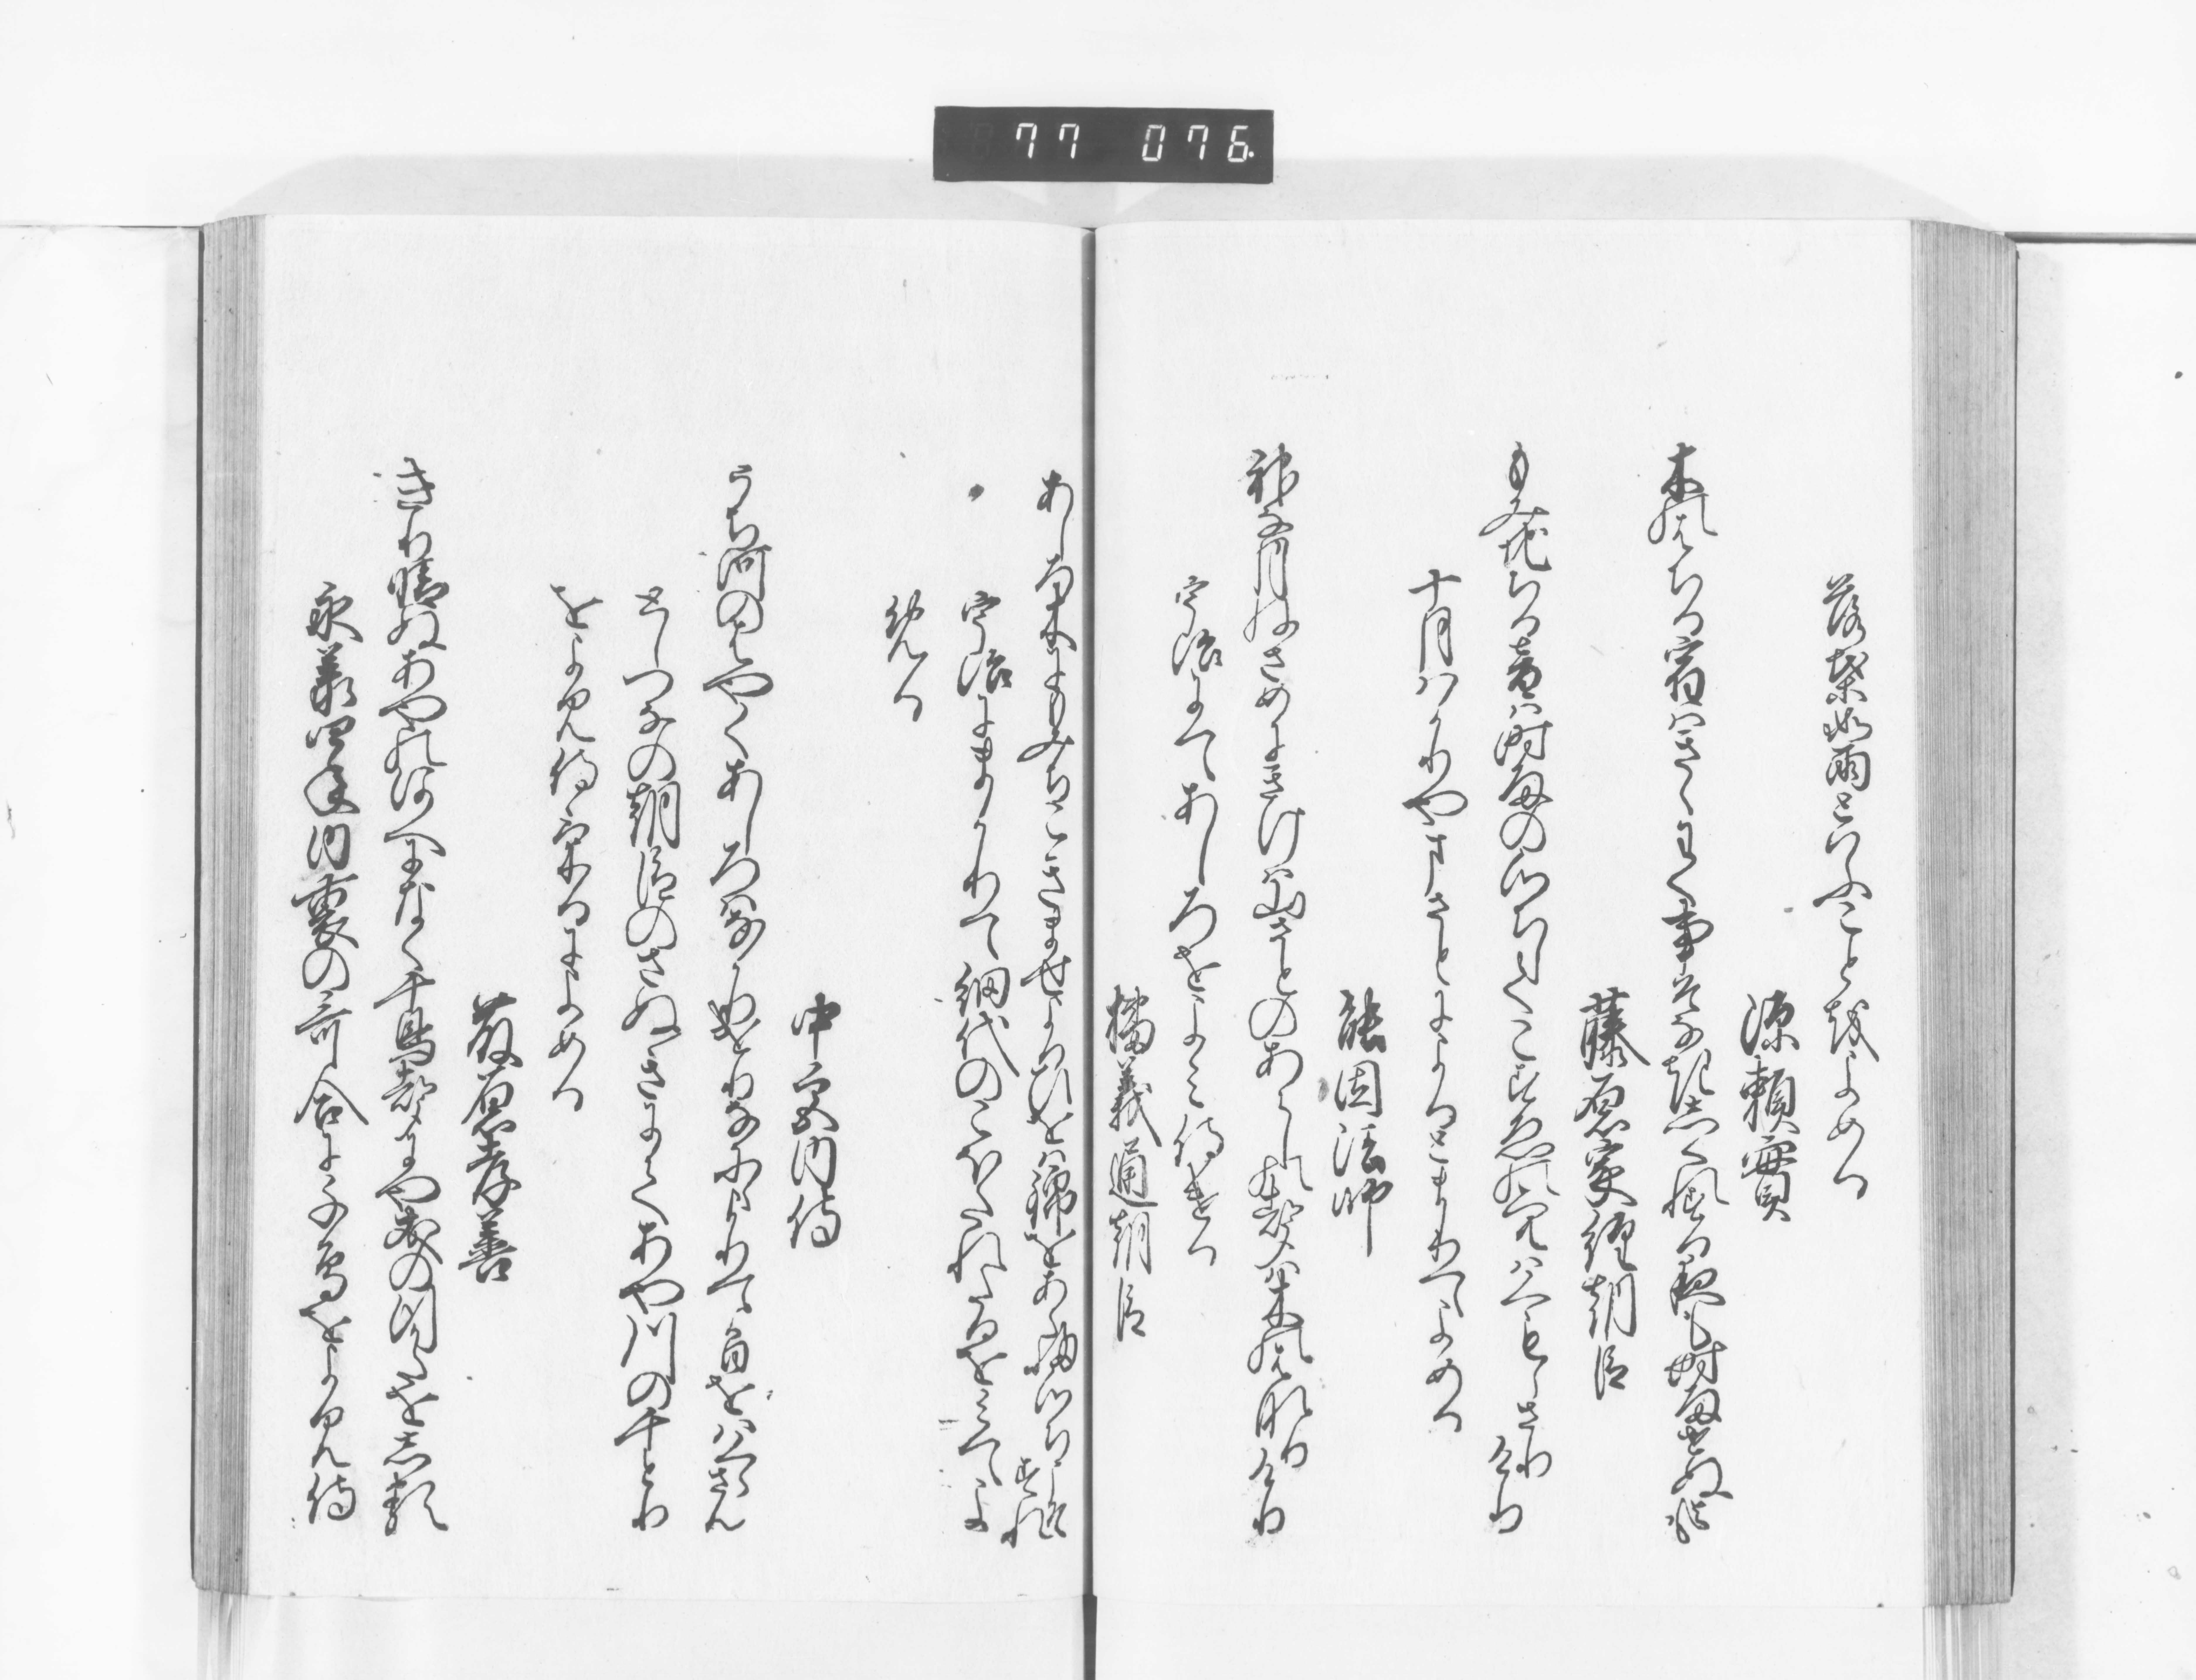 77 076
落葉如雨といふことをよめる
源頼實
木葉ちる宿はきゝわく事そなき志くれする夜も時雨せぬ夜も
藤原家経朝臣
もみちちる音は時雨の心ちしてこすゑの空はくもらさりけり
十月はかり山さとによるとまりてよめる
能因法師
神な月ねさめにきけは山さとのあらしの聲は木葉なりけり
宇治にてあしろをよみ侍ける
橘義通朝臣
あしろ木にもみちこきませよるひをは錦をあらふ心ちこそすれ
宇治にまかりて網代のこほれたるをみてよ
める
中宮内侍
うち河のはやくあしろはなかりけりなにゝよりてか日をはくらさん
としつなの朝臣のさぬきにてあや川の千とり
をよみ侍けるによめる
藤原孝善
きり晴ぬあやの河へになく千鳥聲にや友の行かたを志る
永承四年内裏の哥合に千鳥をよみ侍